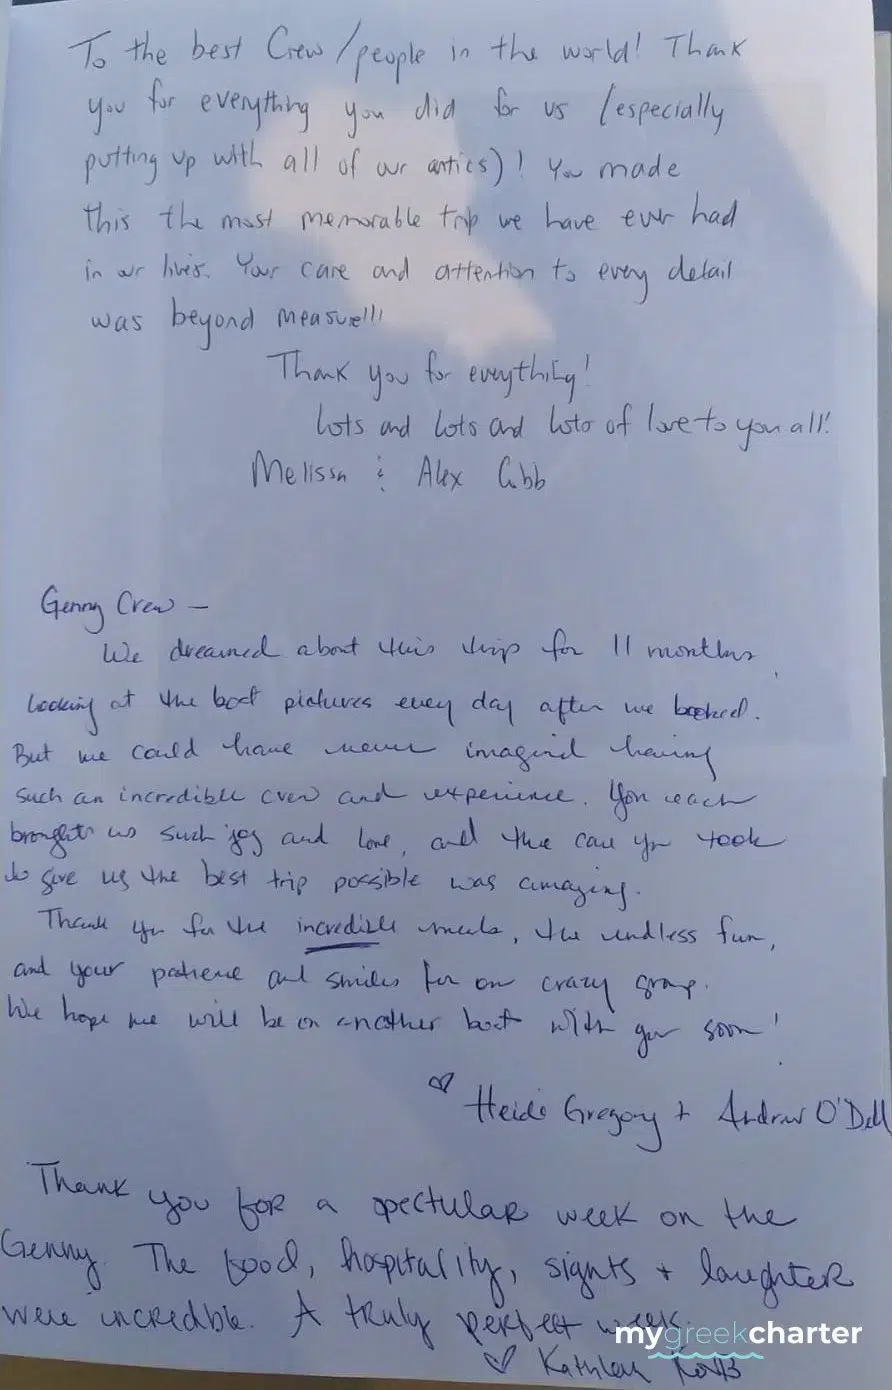 To the best Crew/people in the world! Thank
you for everything you did for us (especially
putting up with all of our antics)! You made
this the most memorable trip we have ever had
in our lives. Your care and attention to every detail
was beyond measure!!!
Thank you for everything!
Lots and Lots and Lots of love to you all!
Melissa & Alex Cobb
Genny Crew —
We dreamed about this trip for 11 months,
looking at the boat pictures every day after we booked.
But we could have never imagined having
such an incredible crew and experience. You each
brought us such joy and love, and the care you took
to give us the best trip possible was amazing.
Thank you for the incredible meals, the endless fun,
and your patience and smiles for our crazy group.
We hope we will be on another boat with you soon!
♡ Heidi Gregory + Andrew O'Dell
Thank you for a spectular week on the
Genny. The food, hospitality, sights + laughter
were incredble. A truly perfect week.
mygreekcharter
♡ Kathleen